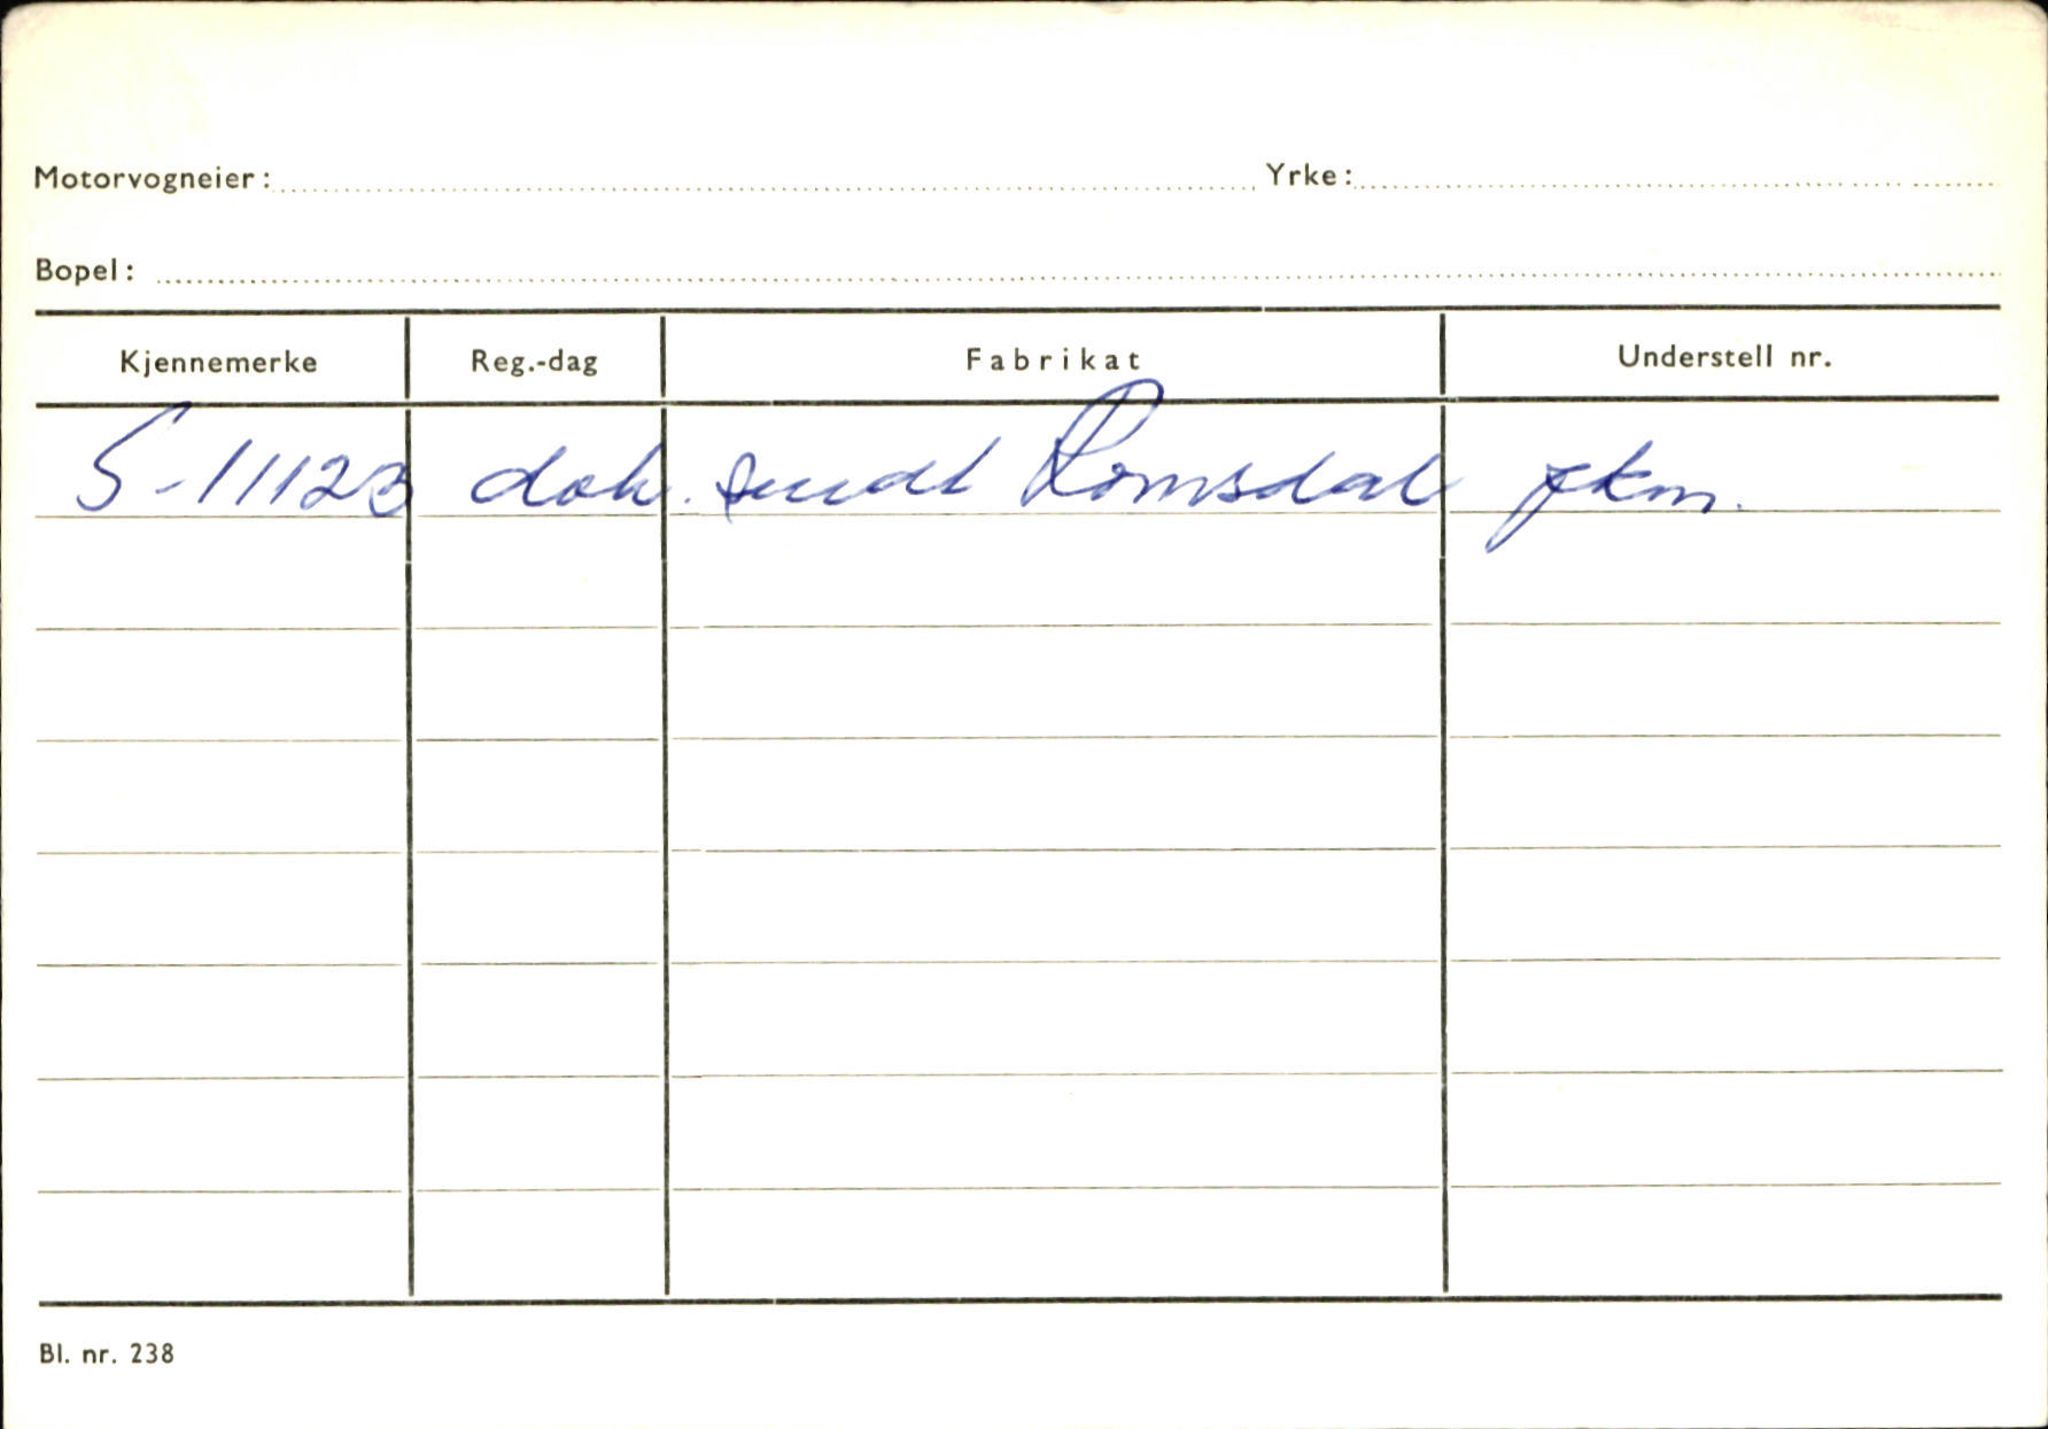 Motorvogneier: Yrke:
Bopel:
Kjennemerke Reg.-dag Fabrikat Understell nr.
S-11123 dok. sendt Romsdal fkm.
Bl. nr. 238